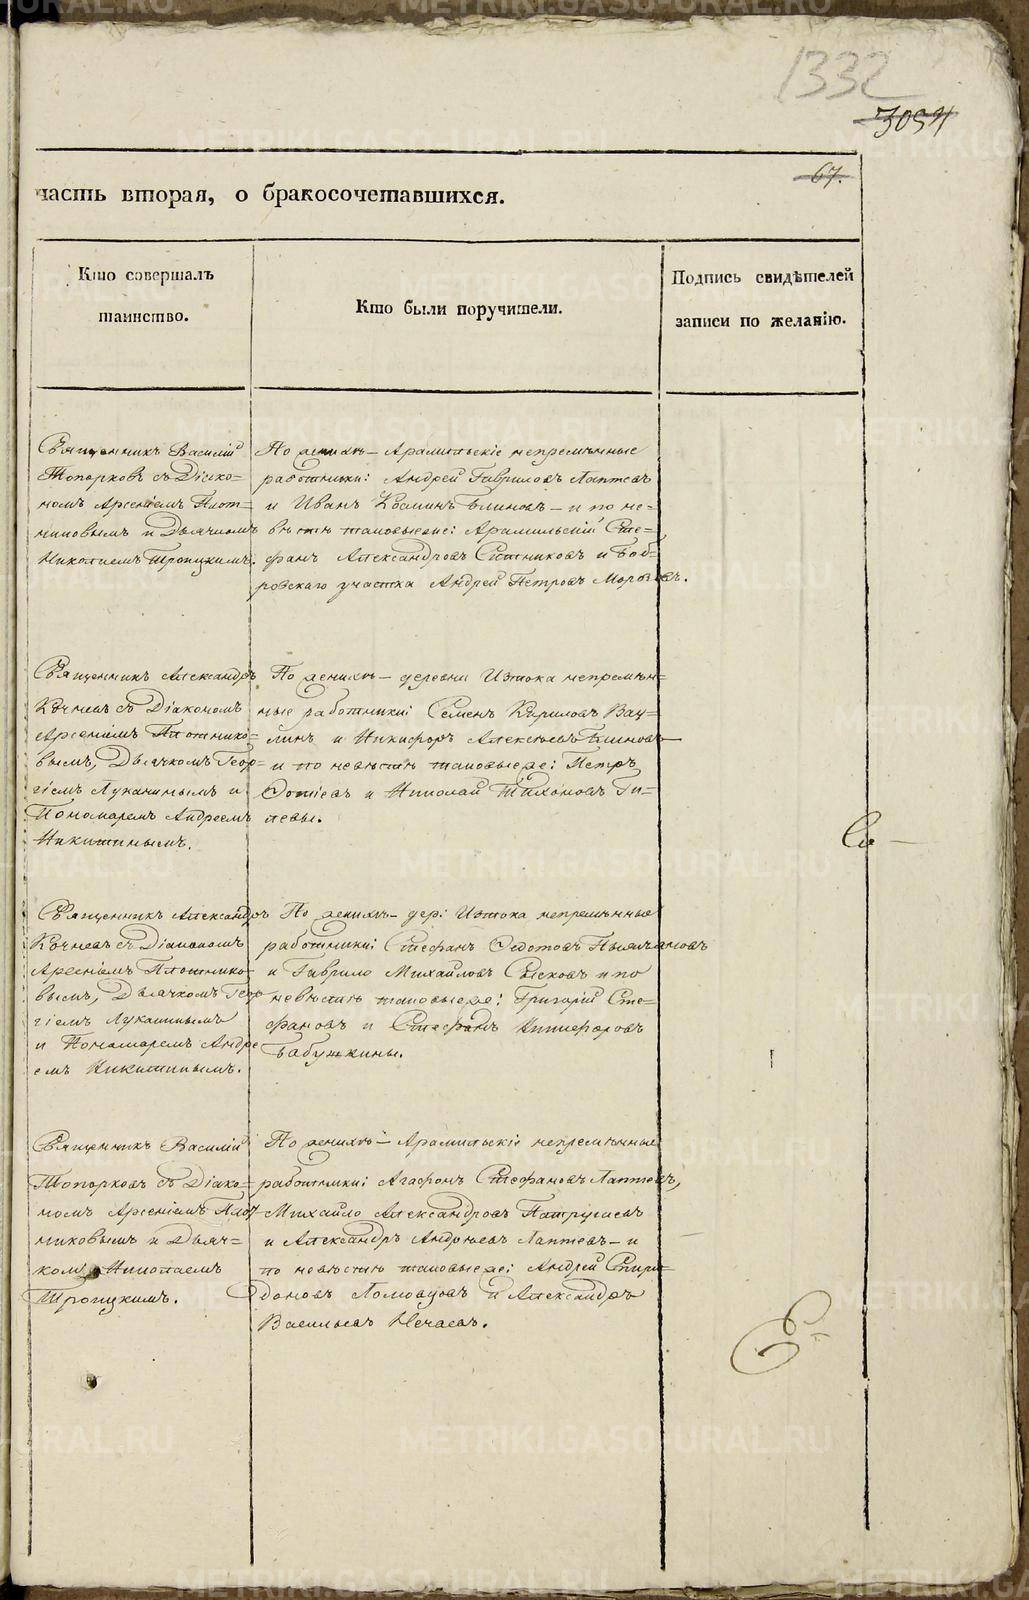 1332
3054
67.
часть вторая, о бракосочетавшихся.
Кто совершалъ
таинство.
Кто были поручители.
Подпись свидѣтелей
записи по желанію.
Священникъ Василій
Топорковъ съ Діако=
номъ Арсеніемъ Плот=
никовымъ и Дьячкомъ
Николаемъ Троицкимъ.
По женихѣ – Арамильскіе непремѣнные
работники: Андрей Гавриловъ Лаптевъ
и Иванъ Козминъ Блиновъ – и по не=
вѣстѣ таковыеже: Арамильскій Сте=
фанъ Александровъ Ситниковъ и Боб=
ровскаго участка Андрей Петровъ Морозовъ.
Священникъ Александръ
Кочневъ съ Діакономъ
Арсеніемъ Плотнико=
вымъ, Дьячкомъ Геор=
гіемъ Луканинымъ и
Пономаремъ Андреемъ
Никитинымъ.
По женихѣ – деревни Истока непремѣн=
ные работники: Семенъ Кириловъ Вау=
линъ и Никифоръ Алексѣевъ Блиновъ
и по невѣстѣ таковыеже: Петръ
Фотіевъ и Николай Тихоновъ Ги=
левы.
Священникъ Александръ
Кочневъ съ Діакономъ
Арсеніемъ Плотнико=
вымъ, Дьячкомъ Геор=
гіемъ Луканинымъ
и Пономаремъ Андре
емъ Никитинымъ.
По женихѣ – дер: Истока непремѣнные
работники: Стефанъ Федотовъ
и Гаврило Михайловъ Сысковъ и по
невѣстѣ таковыеже: Григорій Сте=
фановъ и Стефанъ Никифоровъ
Бабушкины.
Священникъ Василій
Топорковъ съ Діако=
номъ Арсеніемъ Плот
никовымъ и Дьяч=
комъ Николаемъ
Троицкимъ.
По женихѣ – Арамильскіе непремѣнные
работники: Агафонъ Стефановъ Лаптевъ,
Михайло Александровъ Патрушевъ
и Александръ Андреевъ Лаптевъ – и
по невѣстѣ таковыеже: Андрей Спири=
доновъ Ломовцовъ и Александръ
Васильевъ Нечаевъ.